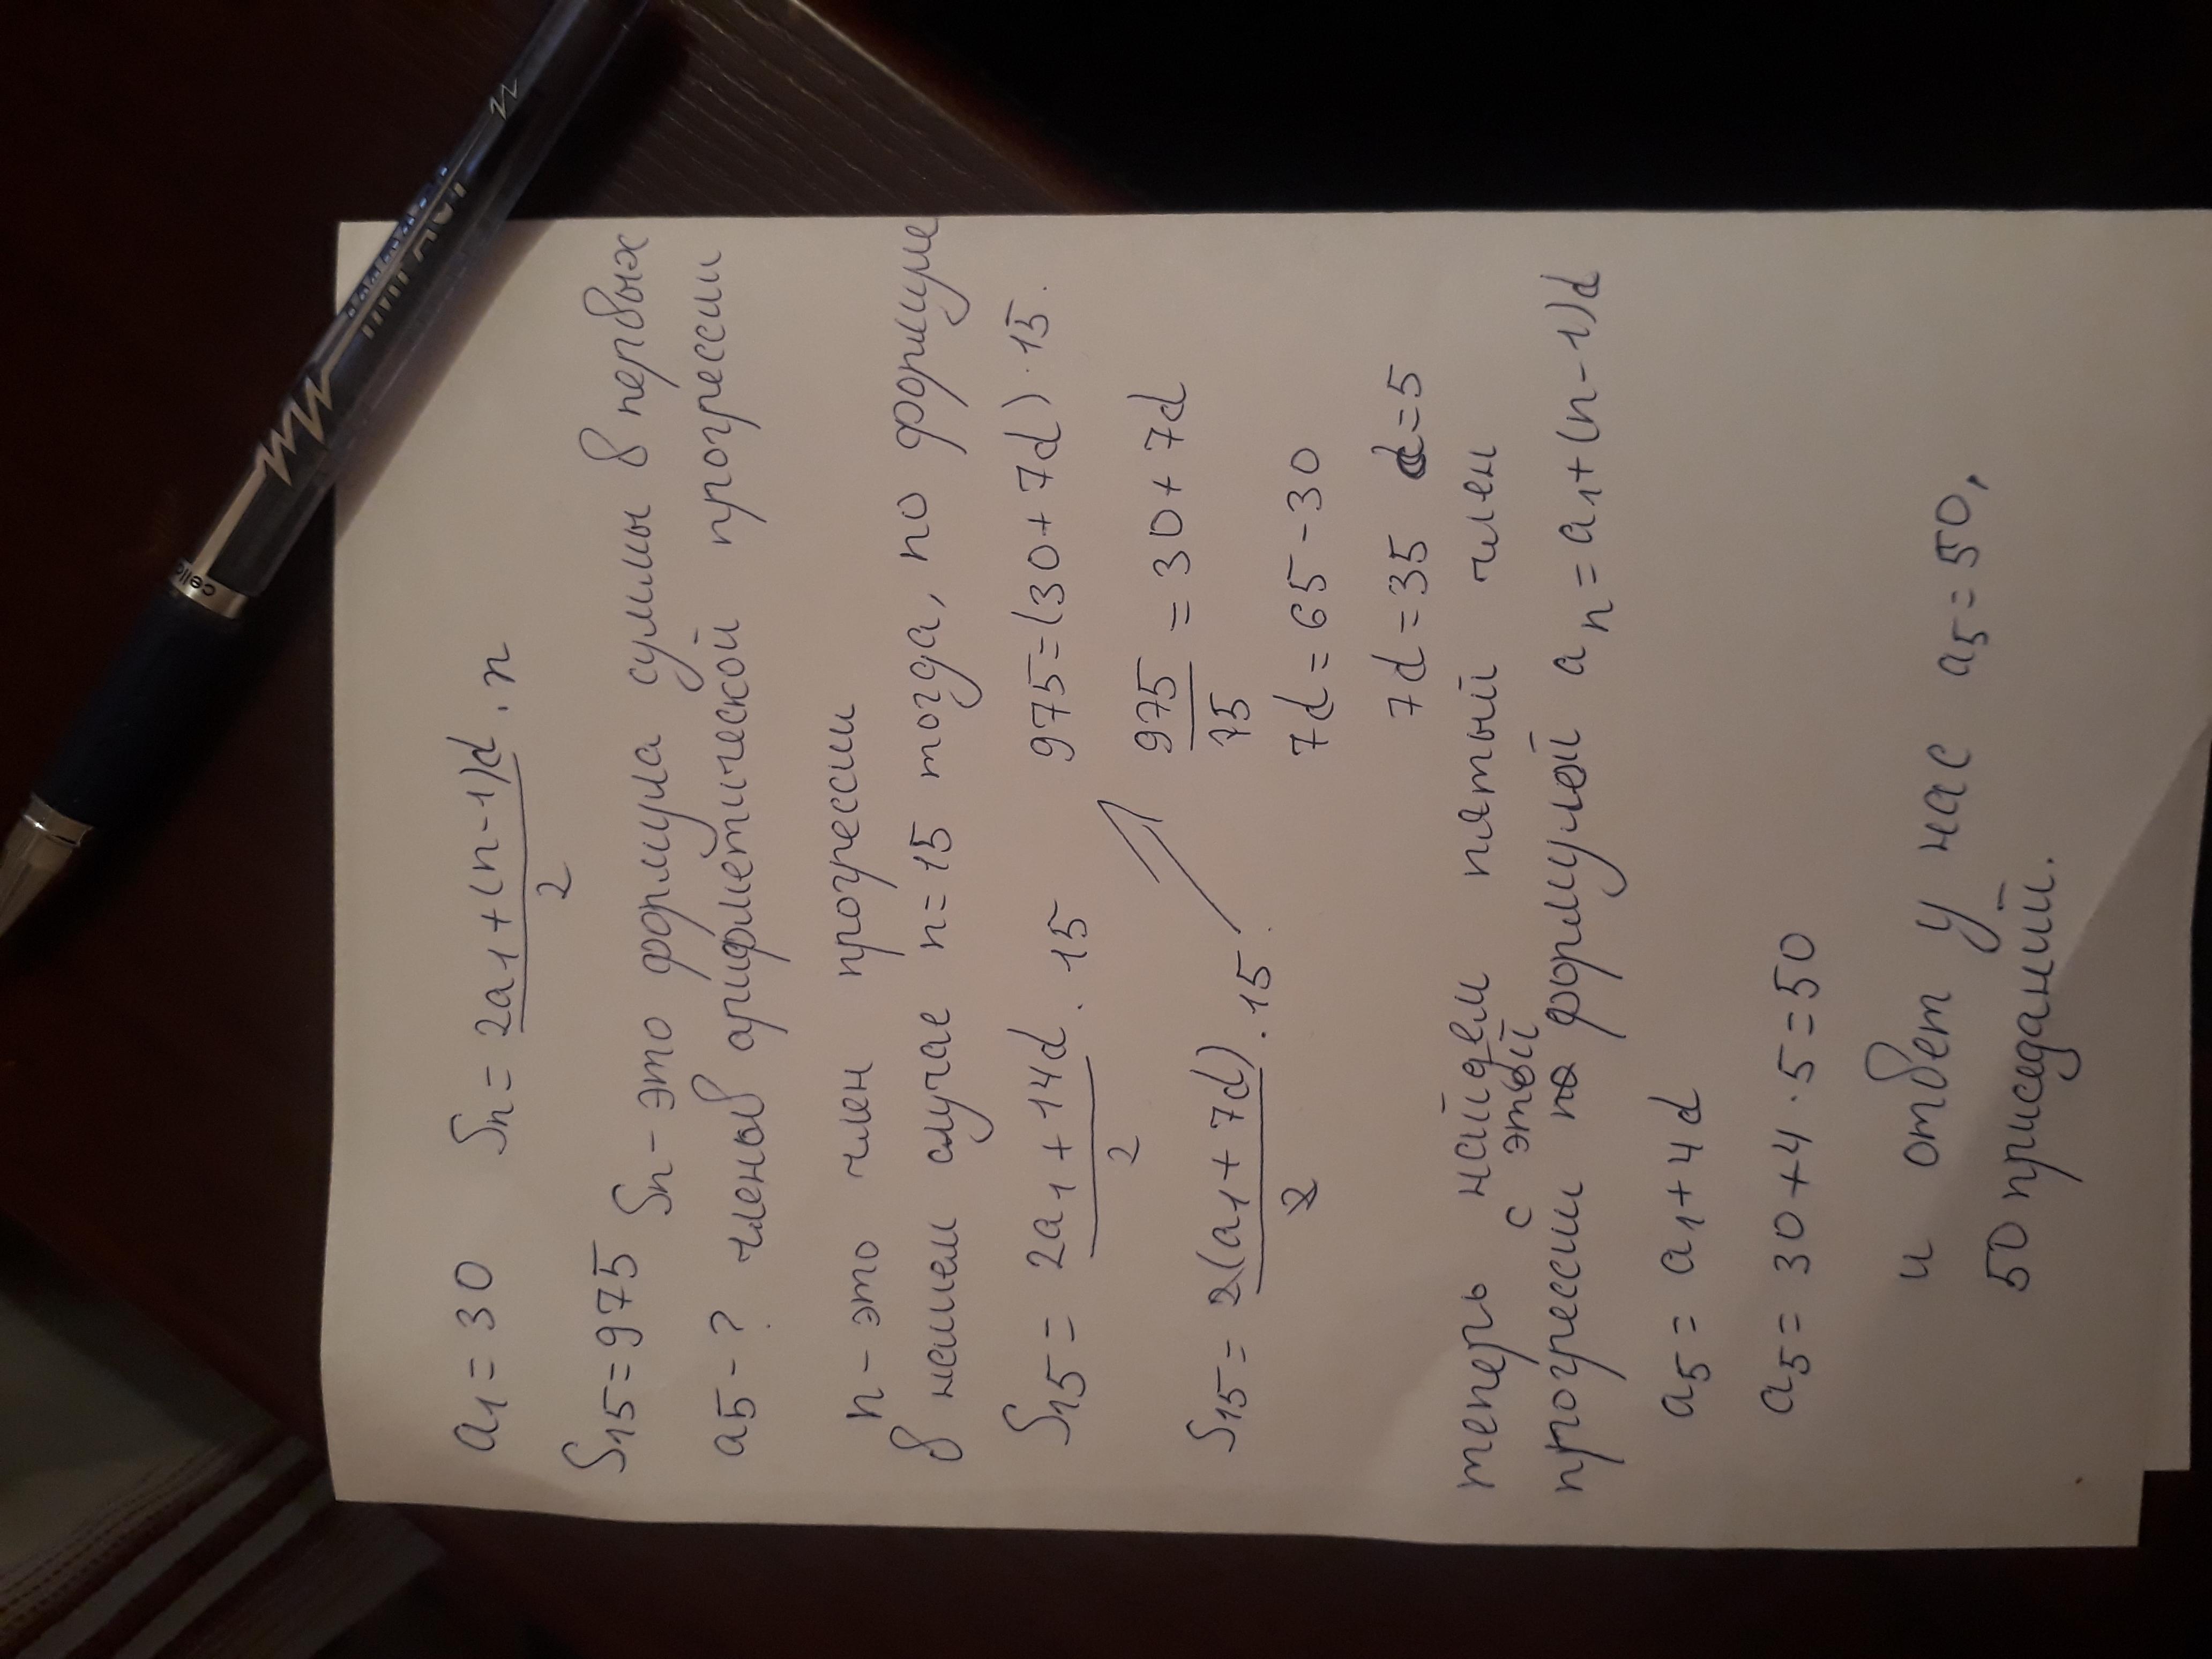 a1 = 30 Sn = 2a1 + (n-1)d / 2 · n
S15 = 975 Sn - это формула суммы в первых
a5 - ? членов арифметической прогрессии
n - это член прогрессии
в нашем случае n = 15 тогда, по формуле
S15 = 2a1 + 14d / 2 · 15 975 = (30 + 7d) · 15.
S15 = 2(a1 + 7d) / 2 · 15. 975 / 15 = 30 + 7d
7d = 65 - 30
7d = 35 d = 5
теперь найдем пятый член
с этой
прогрессии по формулей an = a1 + (n-1)d
a5 = a1 + 4d
a5 = 30 + 4 · 5 = 50
и ответ у нас a5 = 50,
50 приседаний.
cello